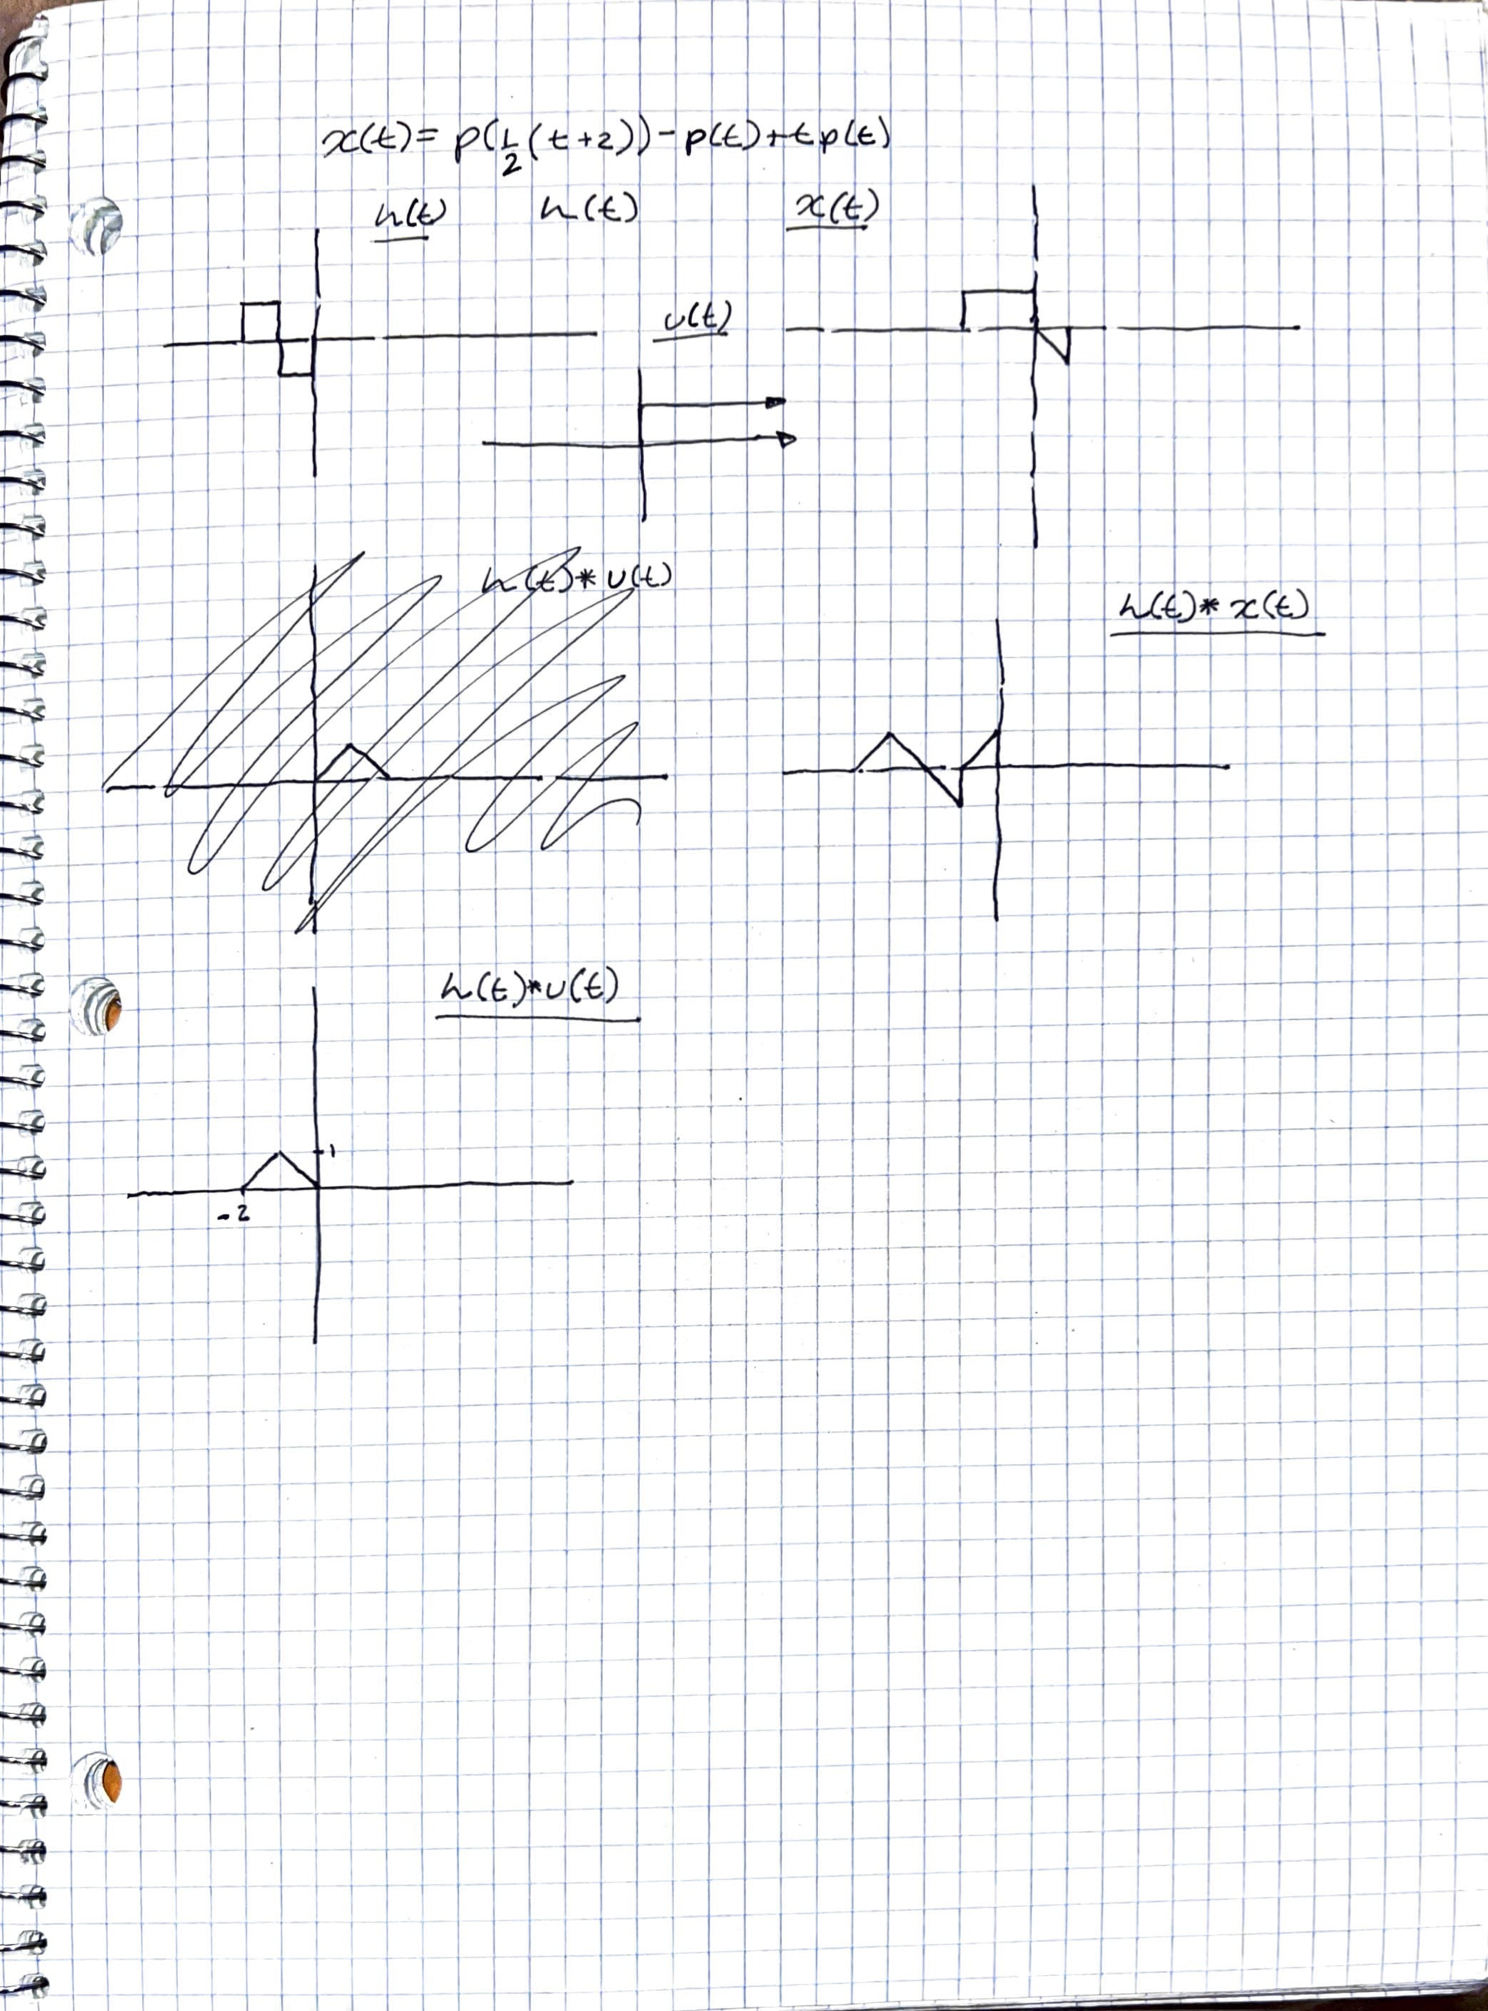 x(t)= p(1/2(t+2))-p(t)+tp(t)
h(t) h(t) x(t)
u(t)
h(t)*u(t)
h(t)* x(t)
h(t)*u(t)
1
-2